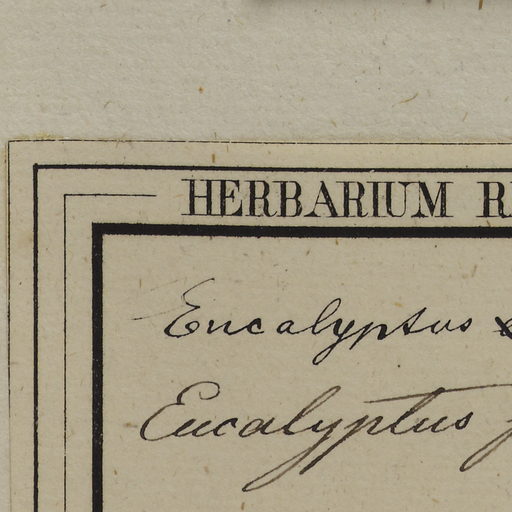 HERBARIUM
Eucalyptus
Eucalyptus